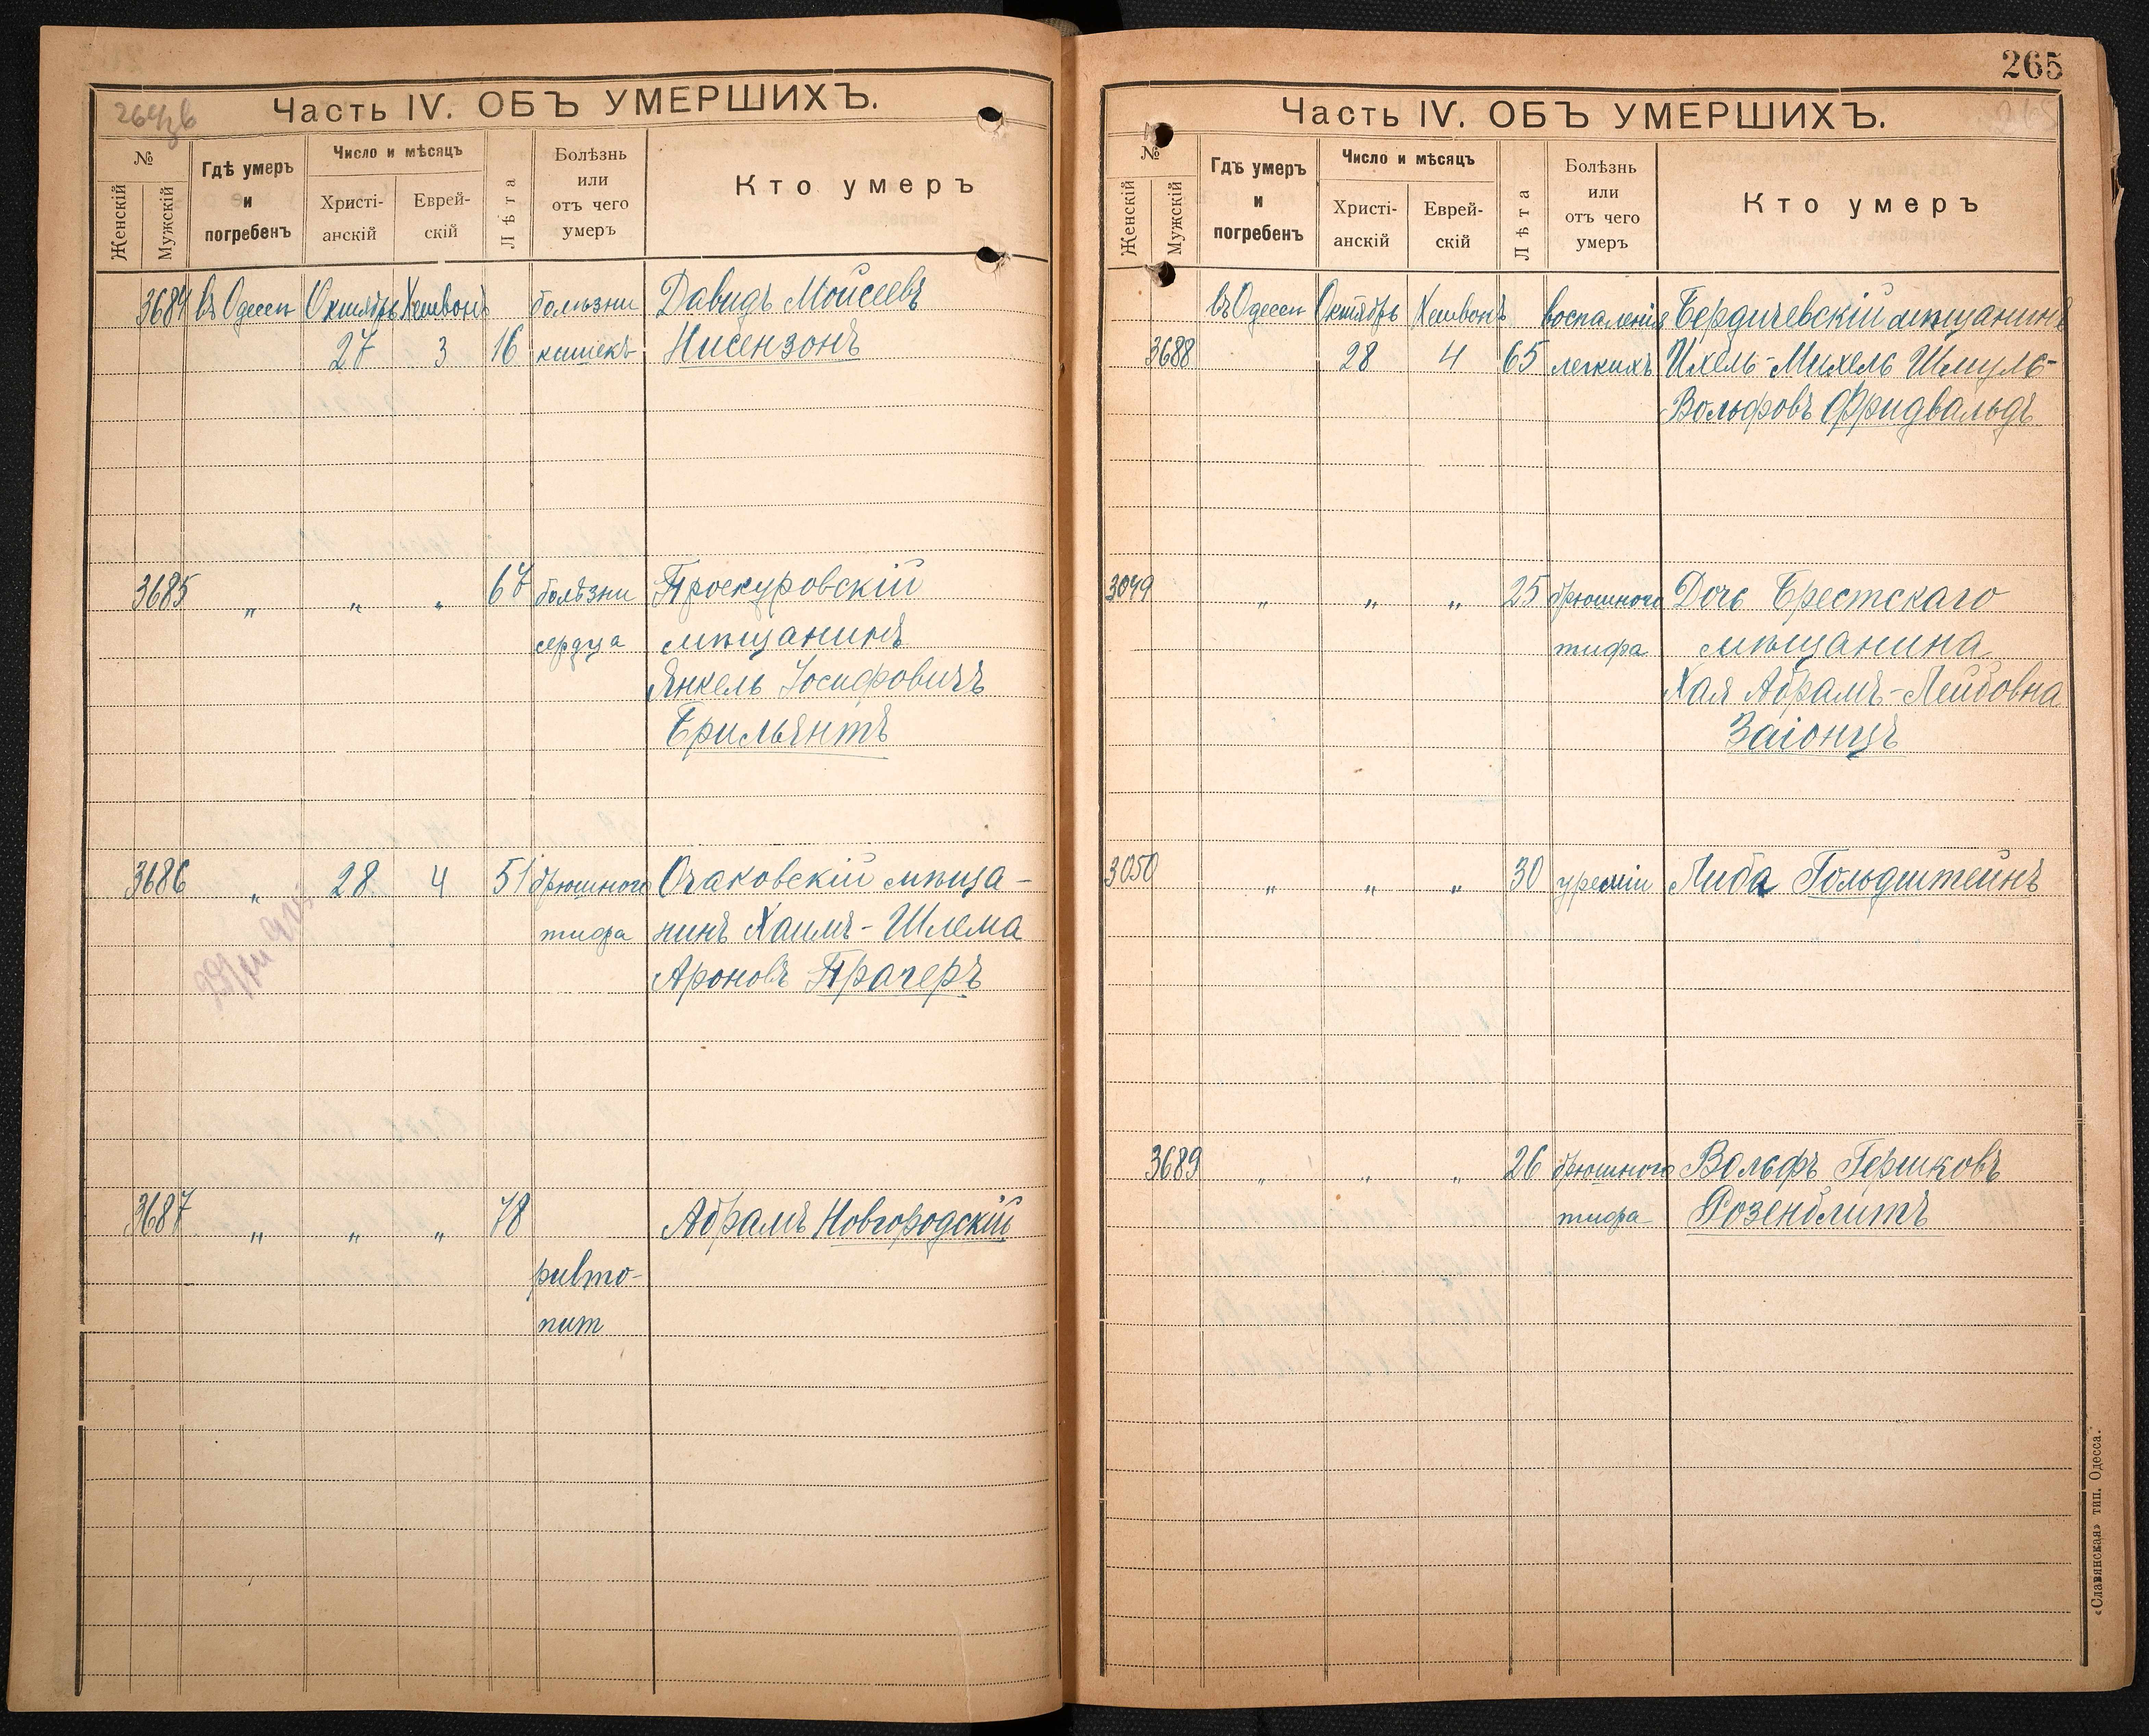 264об
Часть IV. ОБЪ УМЕРШИХЪ.
№
Женскій
Мужскій
Гдѣ умеръ
и
погребенъ
Число и мѣсяцъ
Христі-
анскій
Еврей-
скій
Лѣта
Болѣзнь
или
отъ чего
умеръ
Кто умеръ
3684 въ Одессѣ Октябрь Хешвонъ болѣзни Давидъ Моисеевъ
27 3 16 кишекъ Нисензонъ
3685 " " " 67 болѣзни Проскуровскій
сердца мѣщанинъ
Янкель Іосифовичъ
Брильянтъ
3686 " 28 4 51 брюшного Очаковскій мѣща-
тифа нинъ Хаимъ-Шлема
Ароновъ Прагеръ
3687 " " " 78 Абрамъ Новгородскій
265
Часть IV. ОБЪ УМЕРШИХЪ.
№
Женскій
Мужскій
Гдѣ умеръ
и
погребенъ
Число и мѣсяцъ
Христі-
анскій
Еврей-
скій
Лѣта
Болѣзнь
или
отъ чего
умеръ
Кто умеръ
въ Одессѣ Октябрь Хешвонъ воспаленія Бердичевскій мѣщанинъ
3688 28 4 65 легкихъ Ихель-Михель Шмуль-
Вольфовъ Фридвальдъ
3049 " " " 25 брюшного Дочь Брестскаго
тифа мѣщанина
Хая Абрамъ-Лейбовна
Заіонцъ
3050 " " " 30 уреміи Либа Гольдштейнъ
3689 " " " 26 брюшного Вольфъ Гершковъ
тифа Розенблитъ
«Славянская» тип. Одесса.